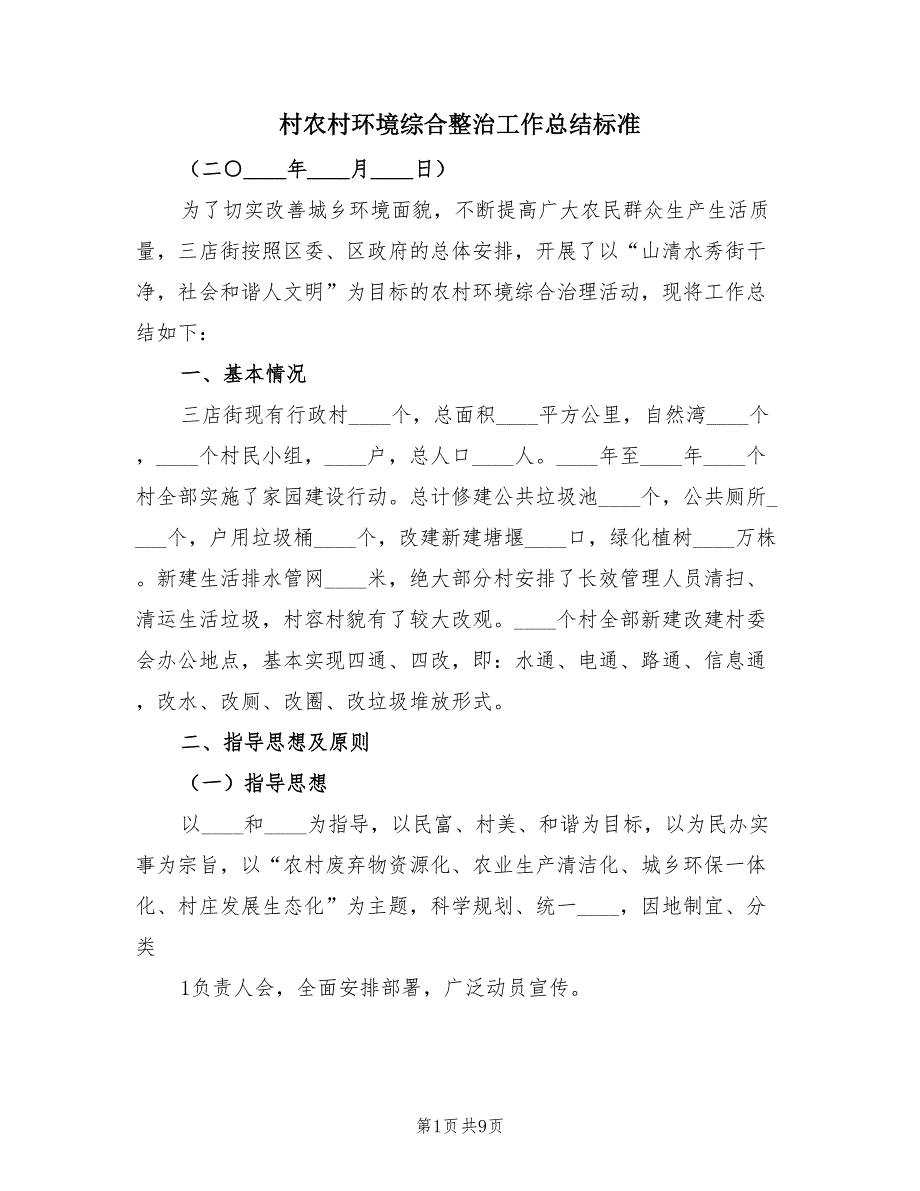 村农村环境综合整治工作总结标准
（二〇____年____月____日）
为了切实改善城乡环境面貌，不断提高广大农民群众生产生活质
量，三店街按照区委、区政府的总体安排，开展了以“山清水秀街干
净，社会和谐人文明”为目标的农村环境综合治理活动，现将工作总
结如下：
一、基本情况
三店街现有行政村____个，总面积____平方公里，自然湾____个
，____个村民小组，____户，总人口____人。____年至____年____个
村全部实施了家园建设行动。总计修建公共垃圾池____个，公共厕所_
___个，户用垃圾桶____个，改建新建塘堰____口，绿化植树____万株
。新建生活排水管网____米，绝大部分村安排了长效管理人员清扫、
清运生活垃圾，村容村貌有了较大改观。____个村全部新建改建村委
会办公地点，基本实现四通、四改，即：水通、电通、路通、信息通
，改水、改厕、改圈、改垃圾堆放形式。
二、指导思想及原则
（一）指导思想
以____和____为指导，以民富、村美、和谐为目标，以为民办实
事为宗旨，以“农村废弃物资源化、农业生产清洁化、城乡环保一体
化、村庄发展生态化”为主题，科学规划、统一____，因地制宜、分
类
1负责人会，全面安排部署，广泛动员宣传。
第1页 共9页